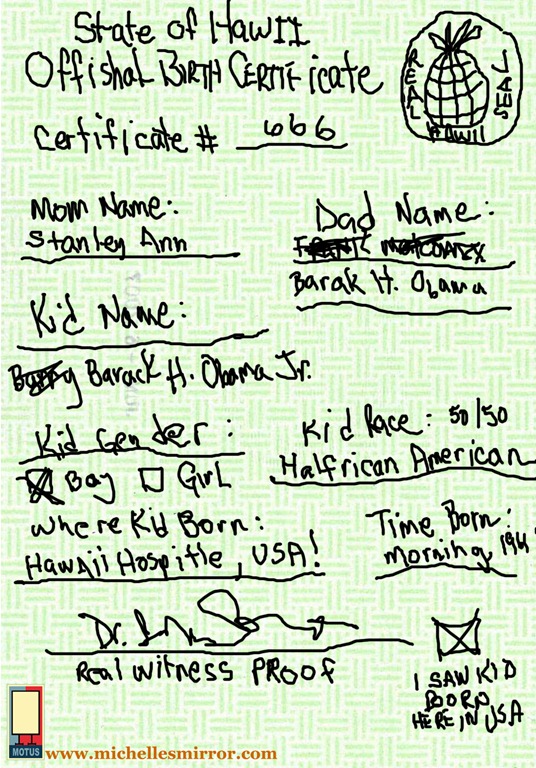 State of HawII
Offishal BIRTH CERTIFicate
REAL
HAWII
SEAL
certificate # 666
Mom Name:
Stanley Ann
Dad Name:
Barak H. Obama
Kid Name:
Barry Barack H. Obama Jr.
Kid Gender:
Boy Girl
Kid Race: 50/50
Halfrican American
Where Kid Born:
Hawaii Hospitle, USA!
Time Born:
morning
Dr.
Real Witness PROOF
I SAW KID
BORN
HERE IN USA
MOTUS
www.michellesmirror.com